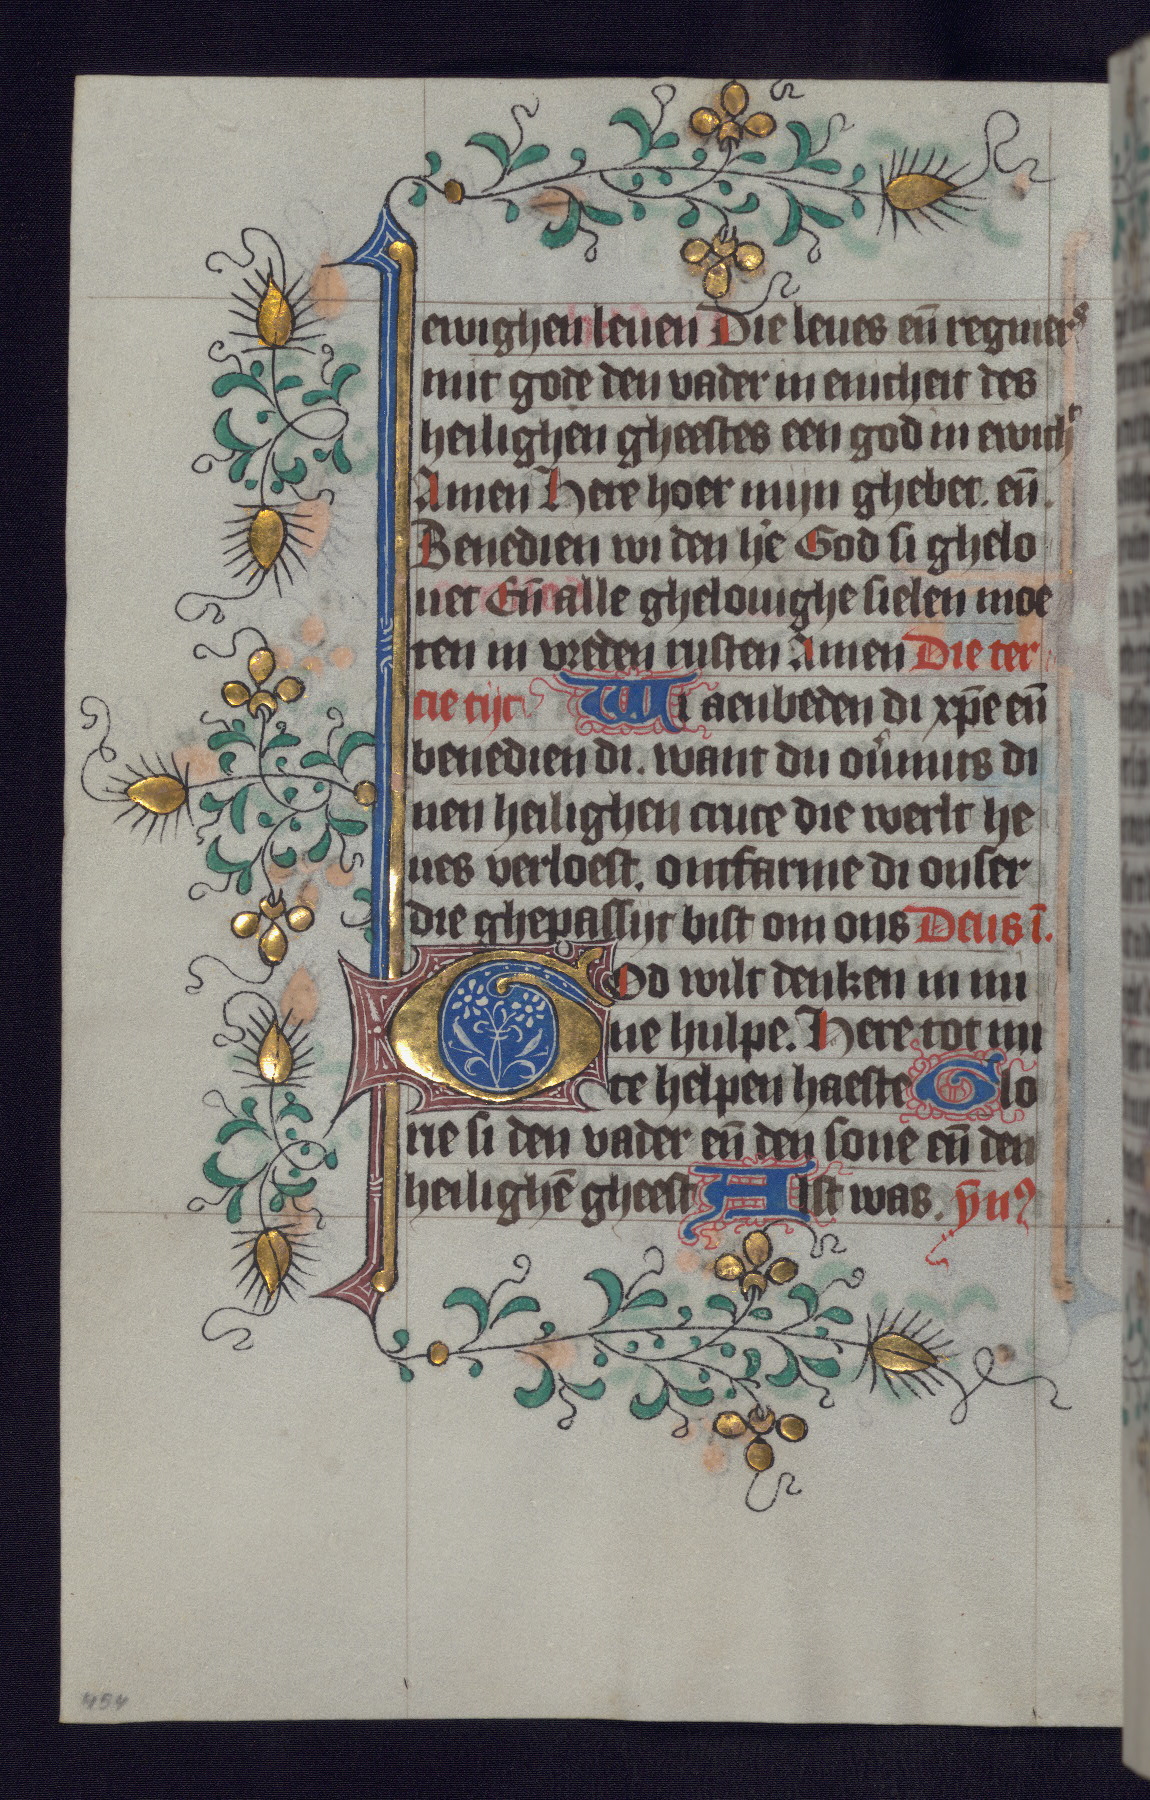 ewighen leuen Die leues en̄ regniers
mit gode den vader in enicheit des
heilighen gheestes een god in ewich
Amen Here hoer mijn ghebet. en̄.
Benedien wi den he᷑ God si ghelo
uet En̄ alle ghelouighe sielen moe
ten in vreden rusten Amen Die ter
cie tijt Wi aenbeden di xp̄e en̄
benedien di. want du ou᷑mits di
nen heilighen cruce die werlt he
ues verloest. ontfarme di onser
die ghepassijt bist om ons Deus ī.
God wilt denken in mi
ne hulpe. Here tot mi
te helpen haeste Glo
rie si den vader en̄ den sone en̄ den
heilighē gheest Alst was. ȳnꝰ
454